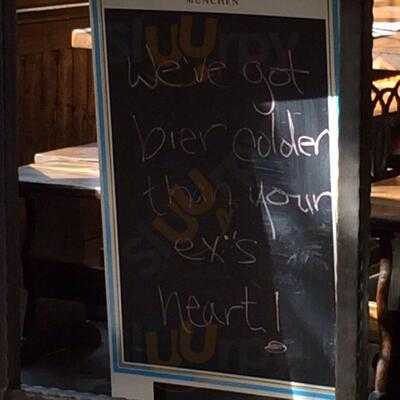 MÜNCHEN
We've got
bier colder
than your
ex's
heart!